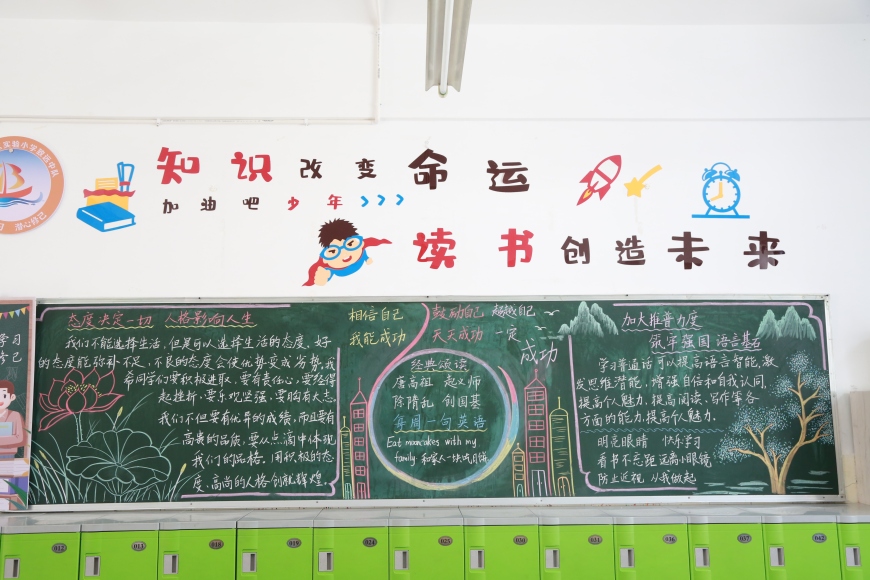 知识改变命运
加油吧少年>>>
读书创造未来
态度决定一切 人格影响人生
我们不能选择生活,但是可以选择生活的态度,好
的态度能弥补不足,不良的态度会使优势变成劣势,我
希同学们要积极进取,要有责任心,要经得
起挫折,要乐观坚强,要胸有大志,
我们不但要有优异的成绩,而且要有
高贵的品质,要从点滴中体现
我们的品格。用积极的态
度、高尚的人格创触辉煌
相信自己
我能成功
鼓励自己 超越自己
天天成功 一定
成功
经典颂读
唐高祖 起义师
除隋乱 创国基
每周一句英语
Eat mooncakes with my
family 和家人一块吃月饼
加大推普力度
筑牢强国 语言基石
学习普通话可以提高语言智能,激
发思维潜能,增强自信和自我认同,
提高个人魅力,提高阅读、写作等各
方面的能力,提高个人魅力。
明亮眼睛 快乐学习
看书不忘距 远离小眼镜
防止近视 从我做起
学习
修己
012
013
018
019
024
025
030
031
036
037
042